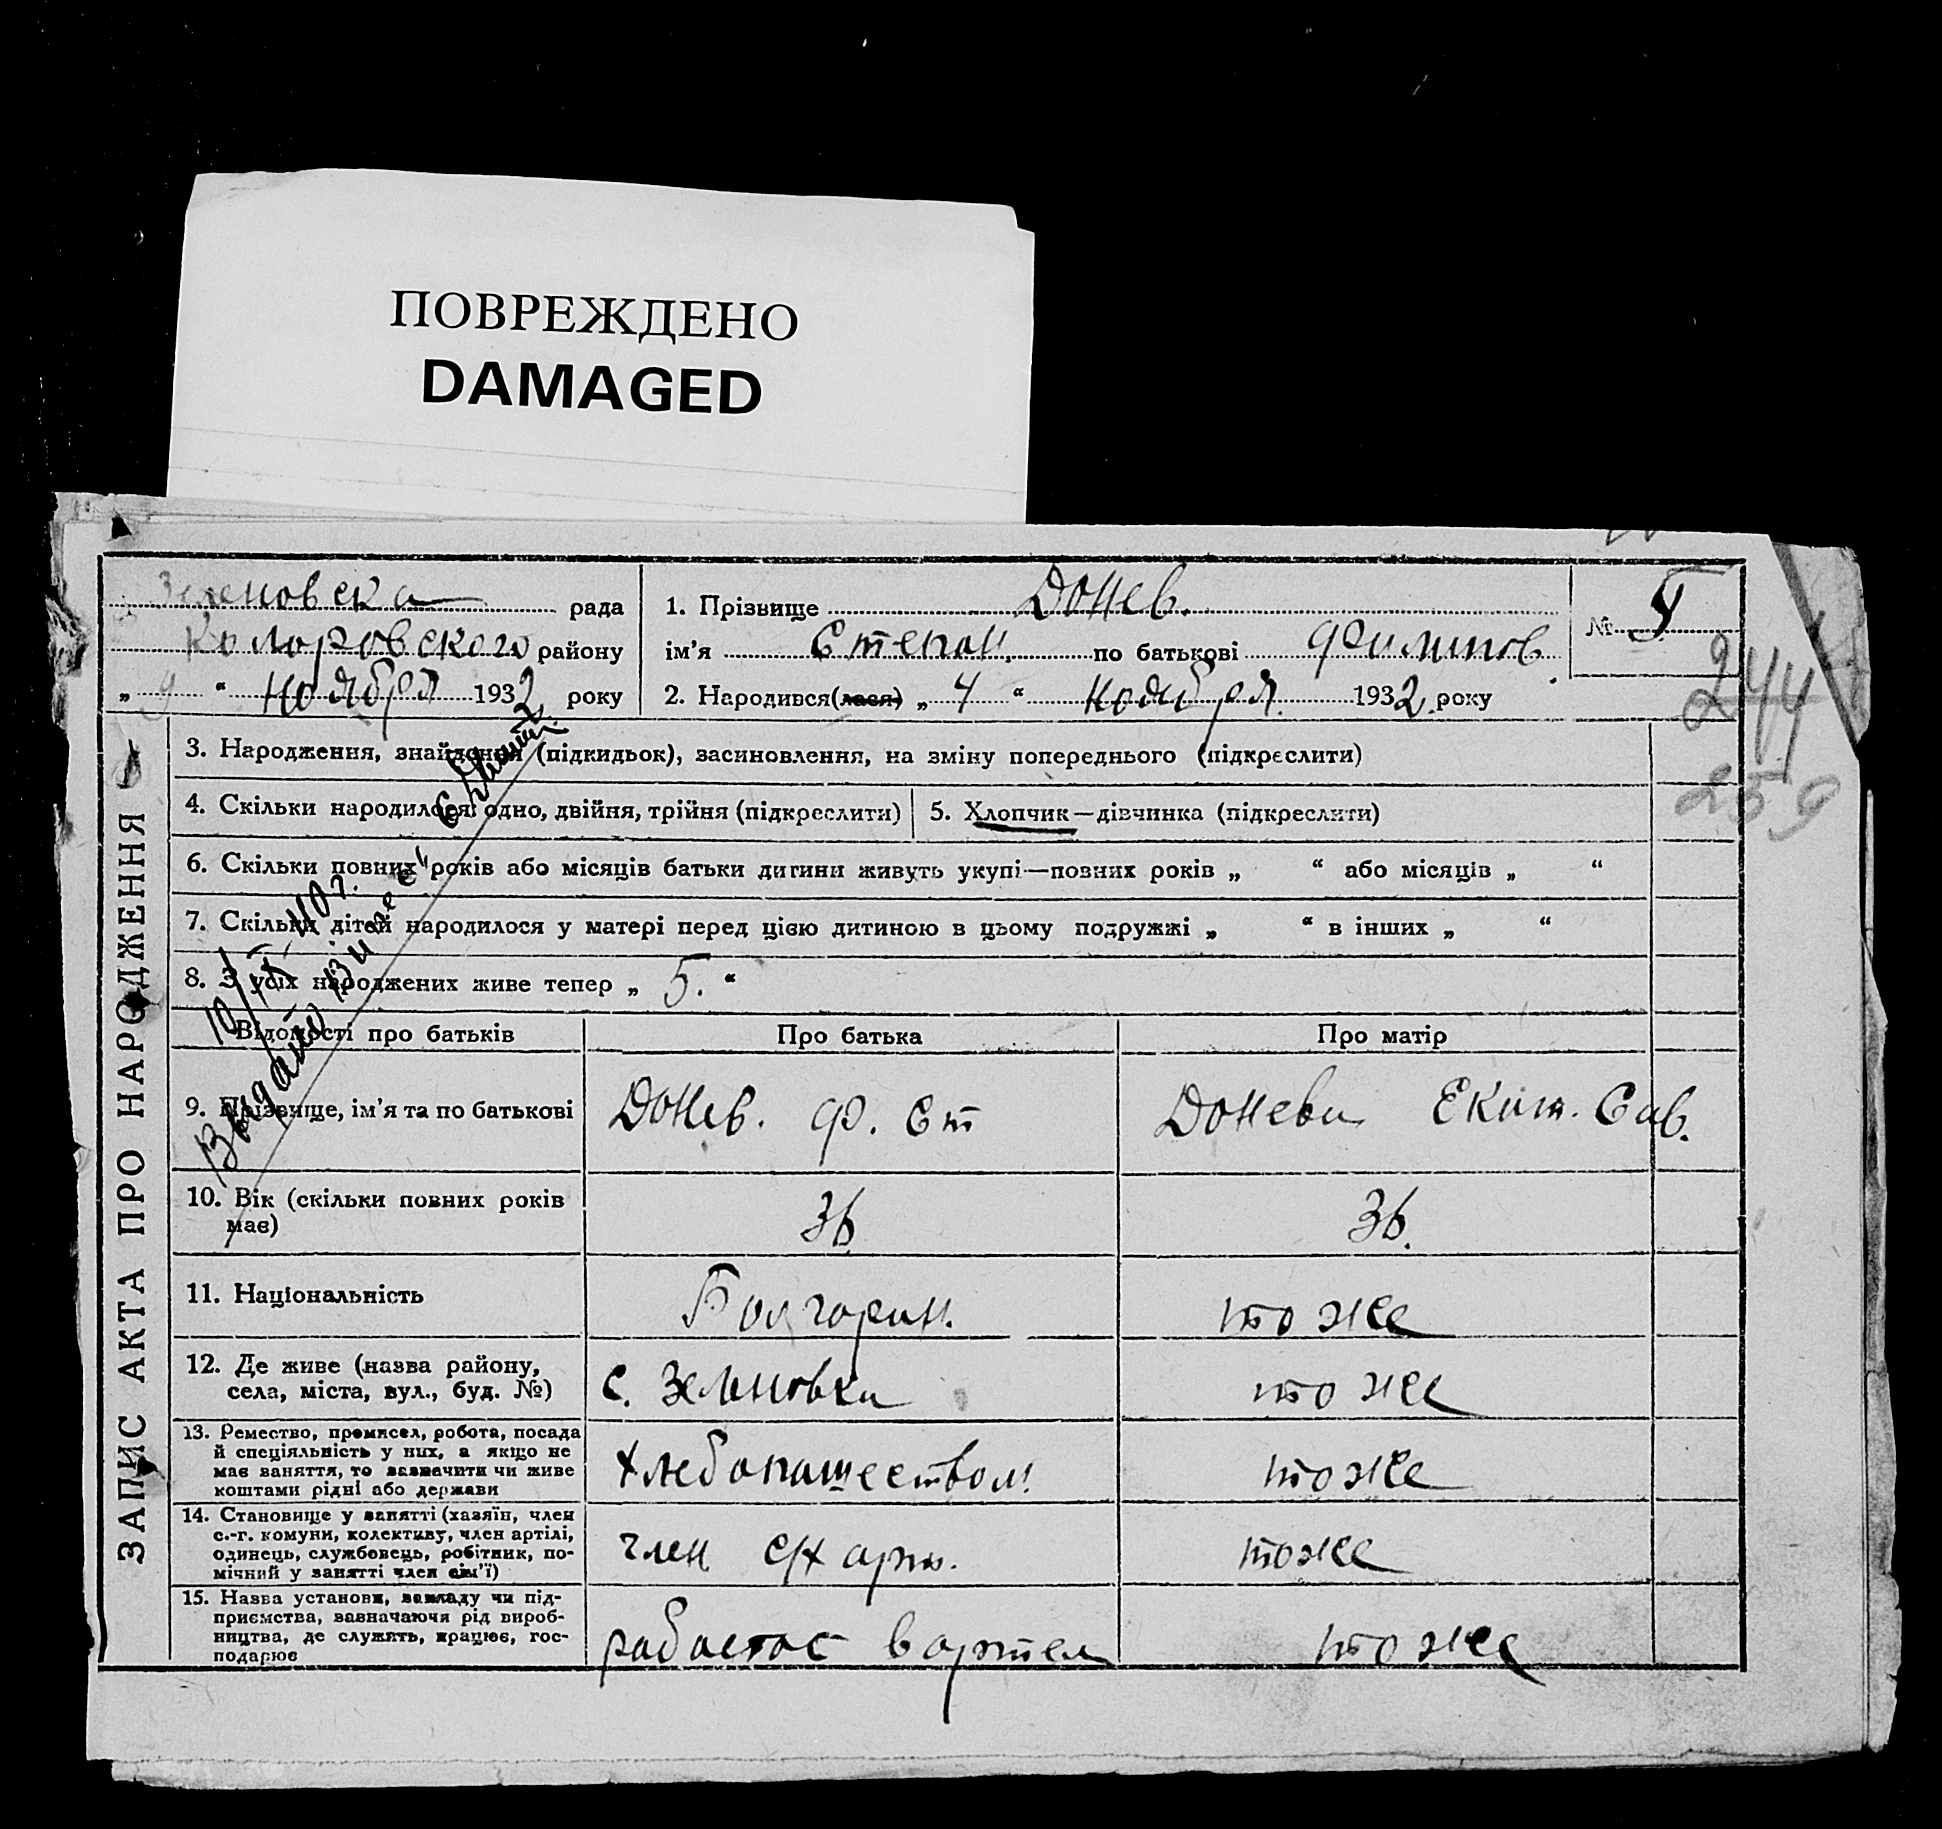 ПОВРЕЖДЕНО
DAMAGED
Зеленовска рада
Коларовского району
„ 9 “ ноября 1932 року
1. Прізвище Донев.
ім’я Степан. по батькові Филипов.
2. Народився(лася) „ 4 “ ноября. 1932. року
№ 5
244
259
ЗАПИС АКТА ПРО НАРОДЖЕННЯ
3. Народження, знайдення (підкидьок), засиновлення, на зміну попереднього (підкреслити)
4. Скільки народилося: одно, двійня, трійня (підкреслити)
5. Хлопчик—дівчинка (підкреслити)
6. Скільки повних років або місяців батьки дитини живуть укупі—повних років „ “ або місяців „ “
7. Скільки дітей народилося у матері перед цією дитиною в цьому подружжі „ “ в інших „ “
8. З усіх народжених живе тепер „ 5. “
10/IX 40 г.
Відомості про батьків
Про батька
Про матір
9. Прізвище, ім’я та по батькові
Донев. Ф. Ст
Донева Екат. Сав.
10. Вік (скільки повних років
має)
36
36.
11. Національність
Болгарин.
то же
12. Де живе (назва району,
села, міста, вул., буд. №)
с. Зеленовка
то же
13. Ремество, промисел, робота, посада
й спеціяльність у них, а якщо не
має заняття, то зазначити чи живе
коштами рідні або держави
Хлебопашеством
то же
14. Становище у занятті (хазяїн, член
с.-г. комуни, колективу, член артілі,
одинець, службовець, робітник, по-
мічний у занятті член сім’ї)
член с/х арт.
тоже
15. Назва установи, закладу чи під-
приємства, зазначаючи рід вироб-
ництва, де служить, працює, гос-
подарює
работас в артел
то же